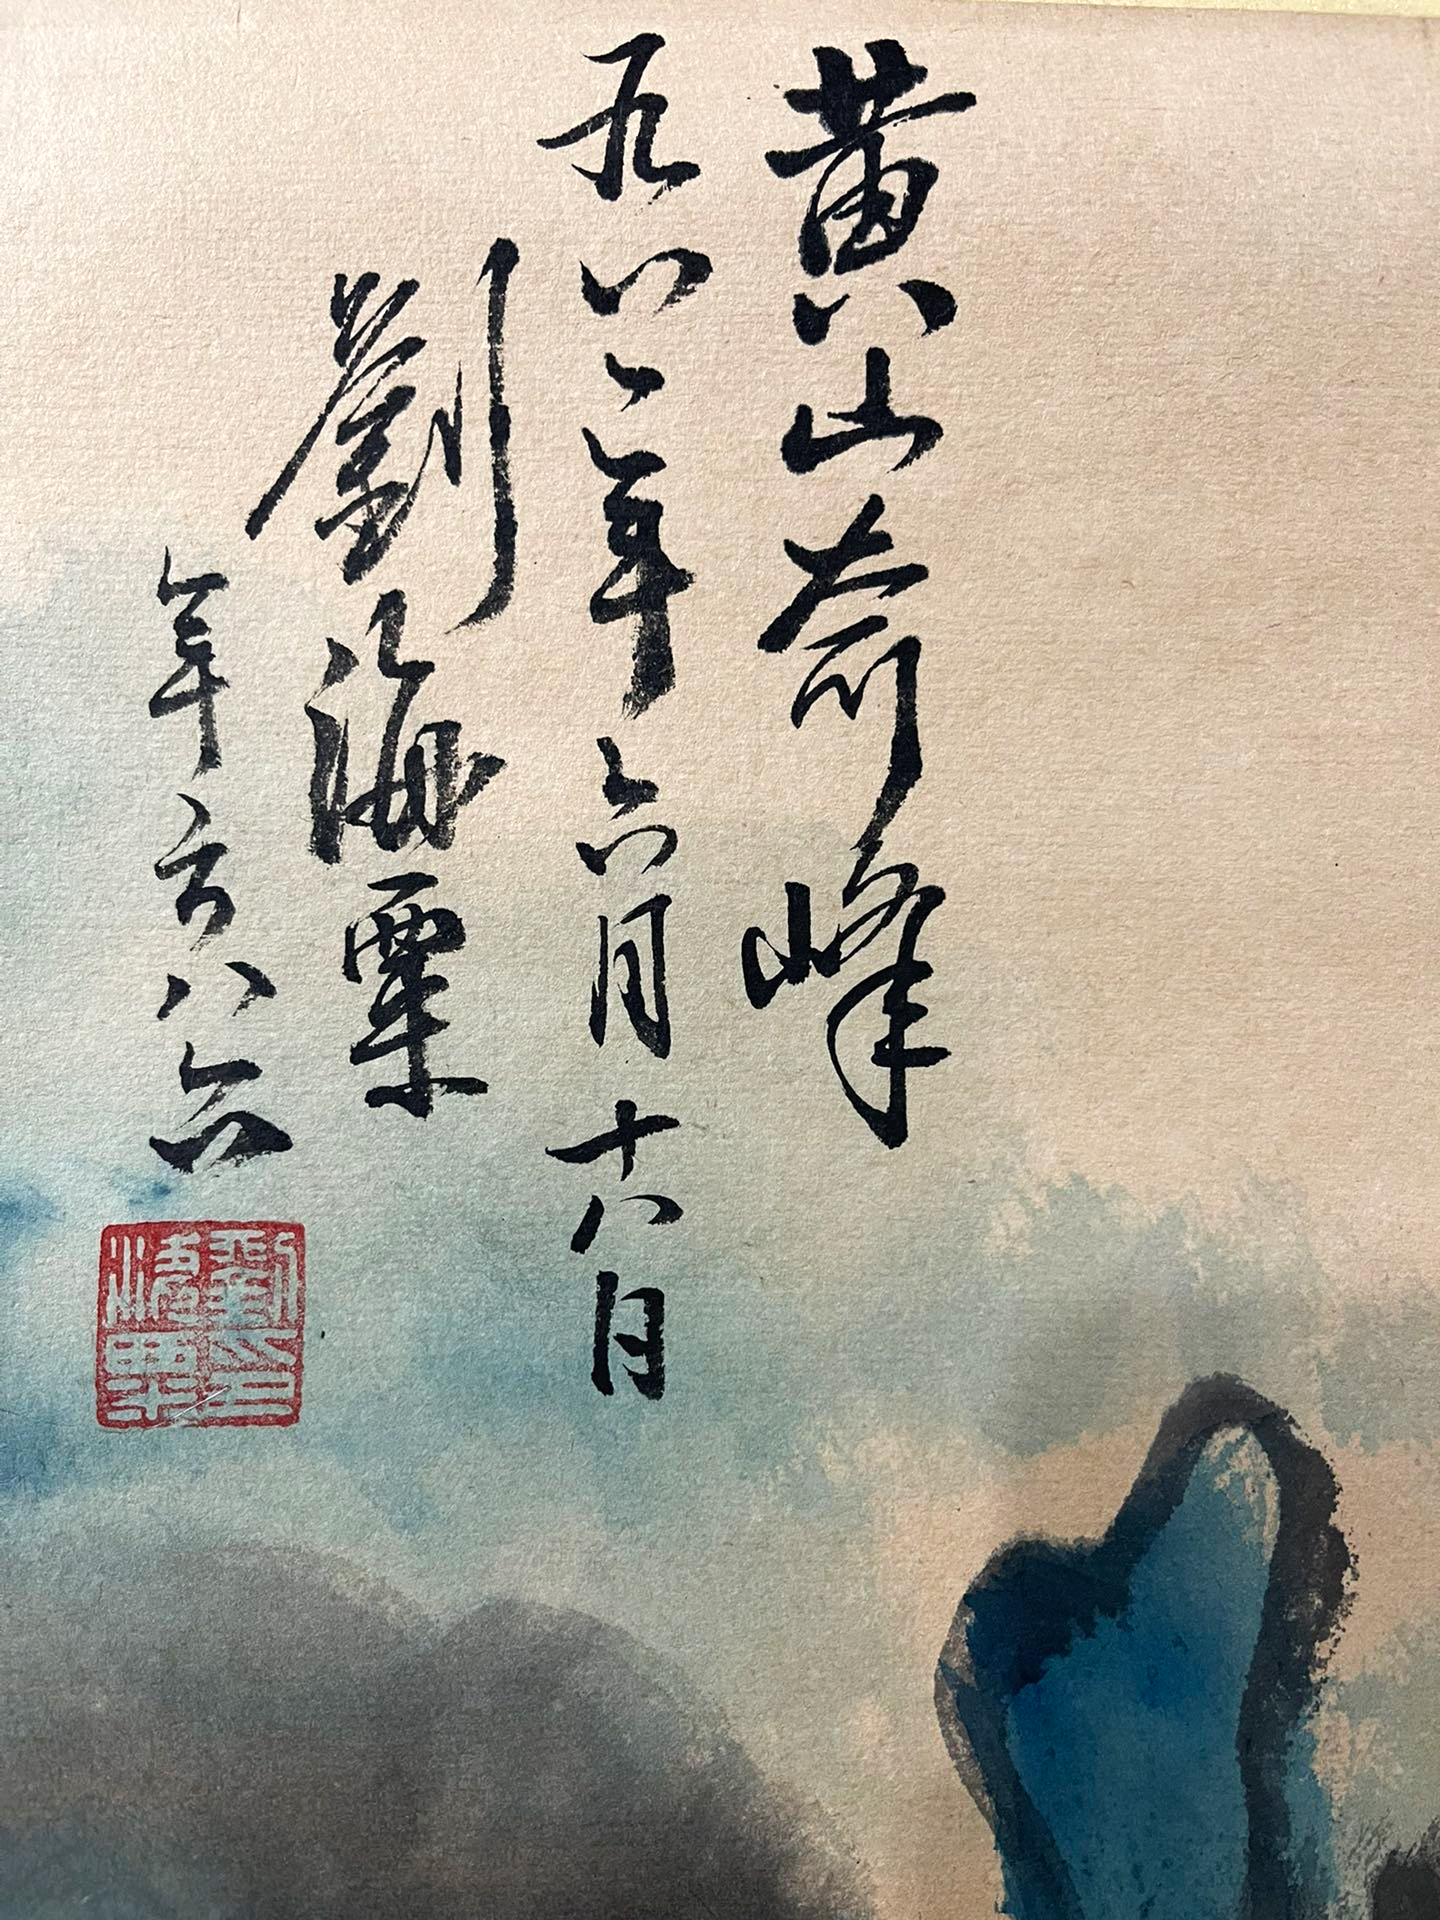 黄山奇峰
九八二年六月十八日
劉海粟
年方八六
劉
海粟